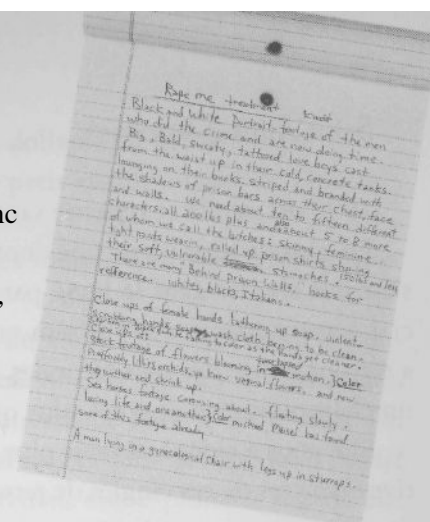 nc
,
Rape me treatment
Black and white Portrait footage of the men
who did the crime and are now doing time.
Big, Bald, sweaty, tattooed love boys cast
from the waist up in their cold, concrete tanks.
lounging on their bunks, striped and branded with
the shadows of prison bars across their chest, face
and walls. we need about ten to fifteen different
characters. all 200 lbs plus and also about 5 to 8 more
of whom we call the bitches: skinny, feminine.
tight pants wearin, rolled up prison shirts showing
their soft, vulnerable stomaches. 150 lbs and less
There are many "Behind prison walls" books for
refference. whites, blacks, Italians.
Close ups of female hands lathering up soap, violent-
scrubbing hands wash cloth, begging to be clean.
Close ups
Stock footage of flowers blooming in motion. } Color
Preffurably lillys orchids, ya know vaginal flowers. and now
they wither and shrink up.
Sea horses footage carousing about. floating slowly.
loving life and oneanother } color michael Meisel has found
some of this footage already
A man lying in a gynecological chair with legs up in sturrups.